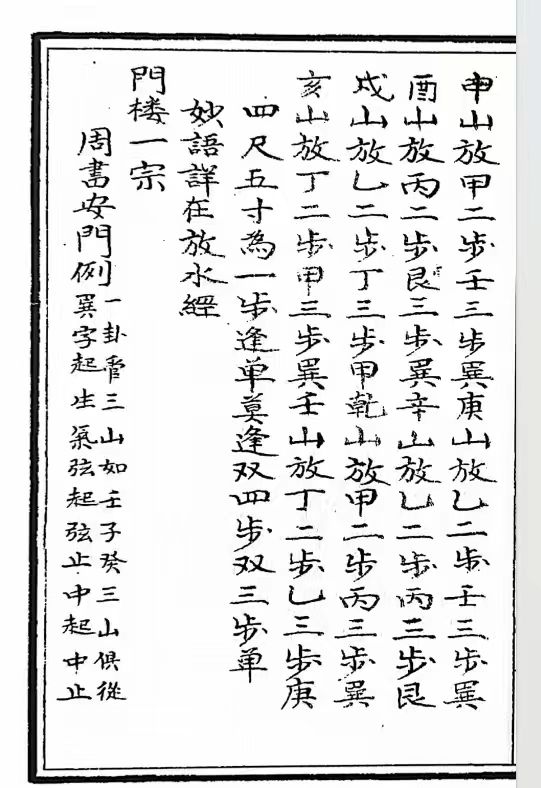 申山放甲二步壬三步巽庚山放乙二步壬三步巽
酉山放丙二步艮三步巽辛山放乙二步丙三步艮
戍山放乙二步丁三步甲乾山放甲二步丙三步巽
亥山放丁二步甲三步巽壬山放丁二步乙三步庚
四尺五寸為一步逢单莫逢双四步双三步单
妙語詳在放水經
門楼一宗
周書安門例一卦管三山如壬子癸三山俱從
巽字起生氣弦起弦止中起中止